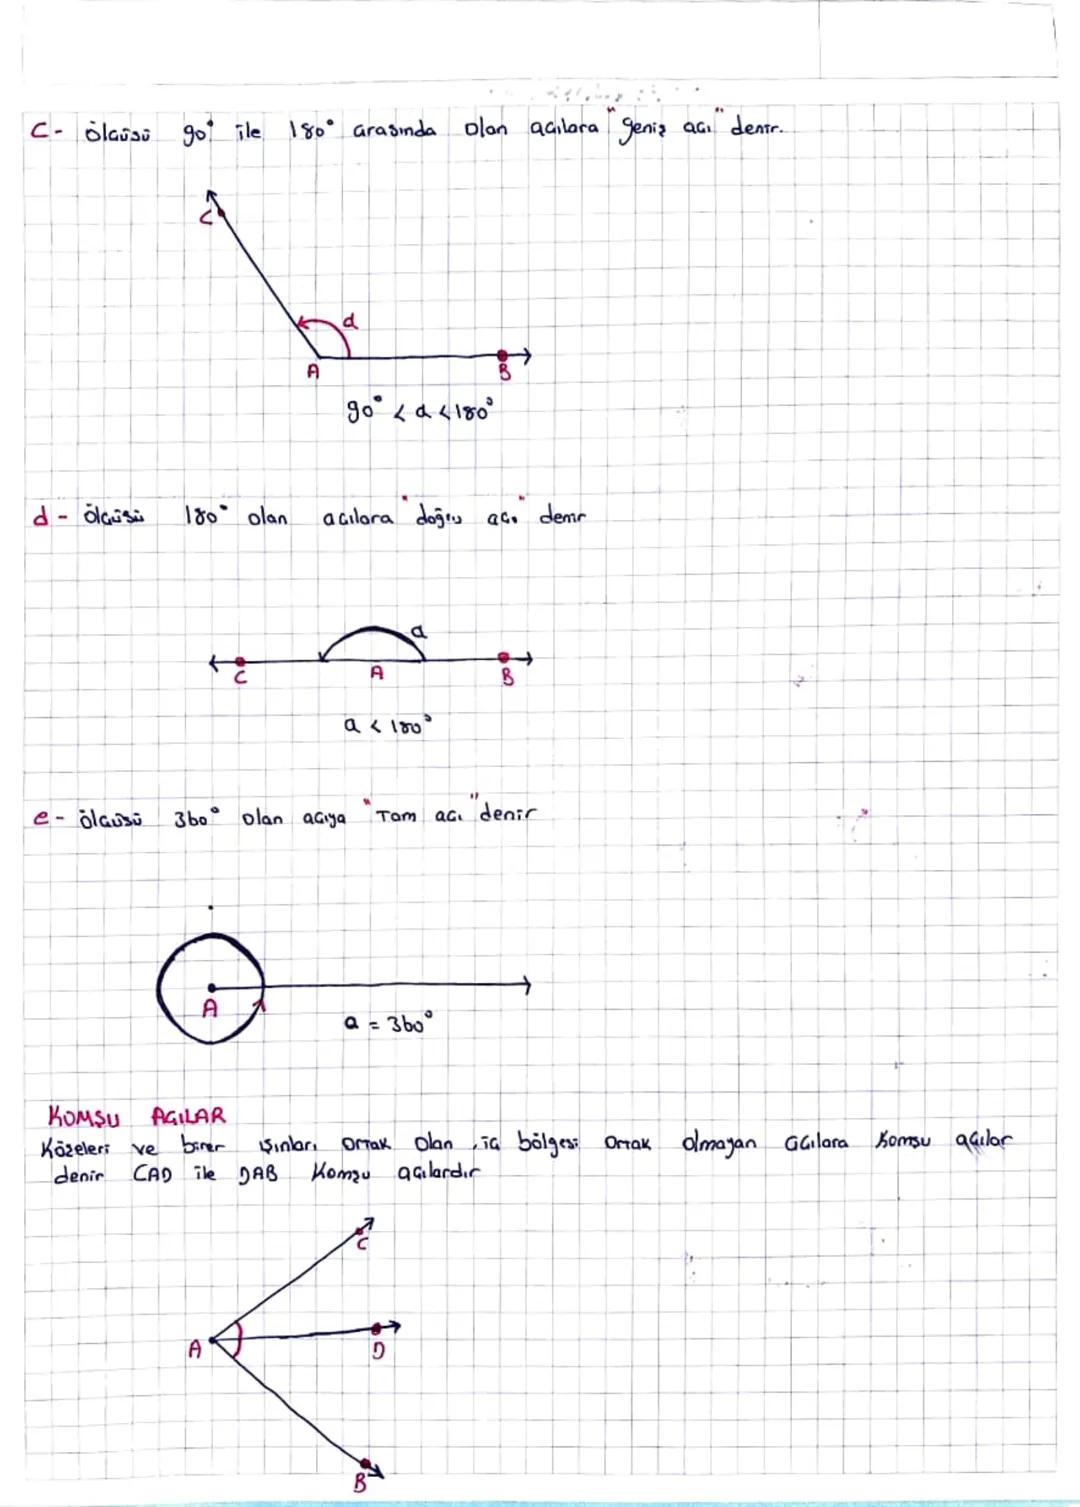 c- ölçüsü 90° ile 180° arasında olan açılara "geniş açı" denir.
C
a
A
B
90° < a < 180°
d- ölçüsü 180° olan açılara "doğru açı" denir
a
C
A
B
a < 180°
e- ölçüsü 360° olan açıya "Tam açı" denir
A
a = 360°
KOMŞU AÇILAR
Köşeleri ve birer ışınları ortak olan, iç bölgesi ortak olmayan açılara komşu açılar
denir CAD ile DAB komşu açılardır
C
A
D
B